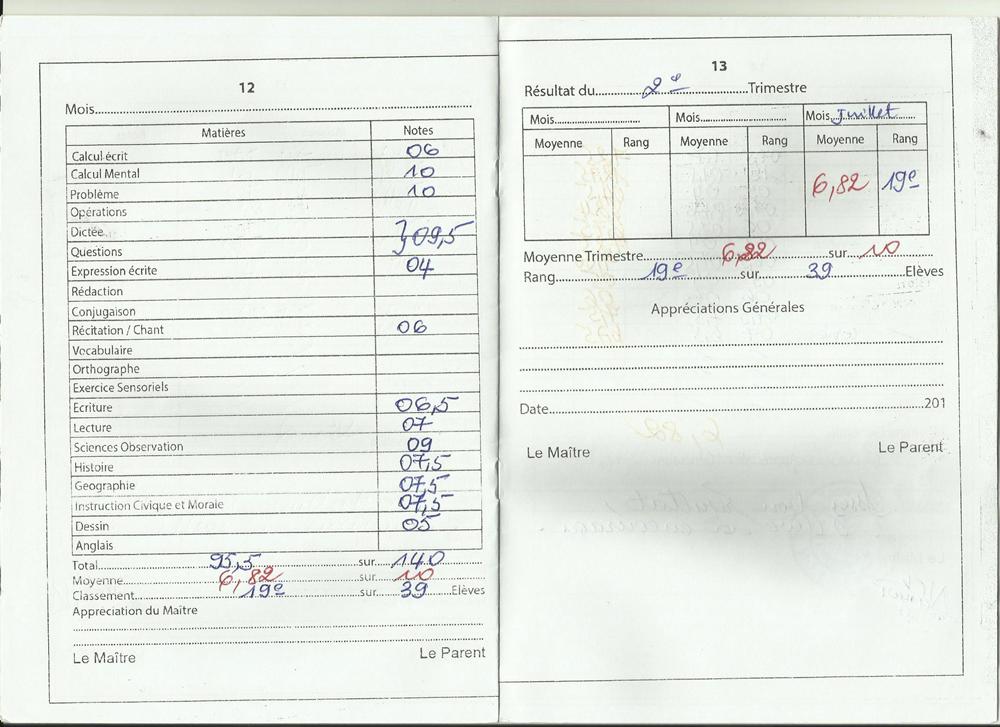 12
Mois
Matières Notes
Calcul écrit 06
Calcul Mental 10
Problème 10
Opérations
Dictée
Questions } 09,5
Expression écrite 04
Rédaction
Conjugaison
Récitation / Chant 06
Vocabulaire
Orthographe
Exercice Sensoriels
Ecriture 06,5
Lecture 07
Sciences Observation 09
Histoire 07,5
Geographie 07,5
Instruction Civique et Morale 07,5
Dessin 05
Anglais
Total 95,5 sur 140
Moyenne 6,82 sur 10
Classement 19e sur 39 Elèves
Appreciation du Maître
Le Maître Le Parent
13
Résultat du 2e Trimestre
Mois Mois Mois Juillet
Moyenne Rang Moyenne Rang Moyenne Rang
6,82 19e
Moyenne Trimestre 6,82 sur 10
Rang 19e sur 39 Elèves
Appréciations Générales
Date 201
Le Maître Le Parent